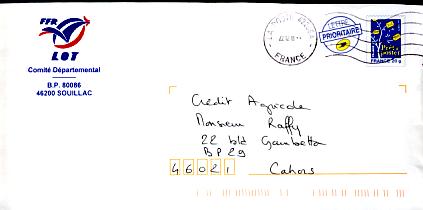 FFR
LOT
Comité Départemental
B.P. 80066
46200 SOUILLAC
FRANCE
LETTRE
PRIORITAIRE
Prêt à
poster
FRANCE 20 g
Crédit Agricole
Monsieur Raffy
22 bld Gambetta
BP 29
46021 Cahors